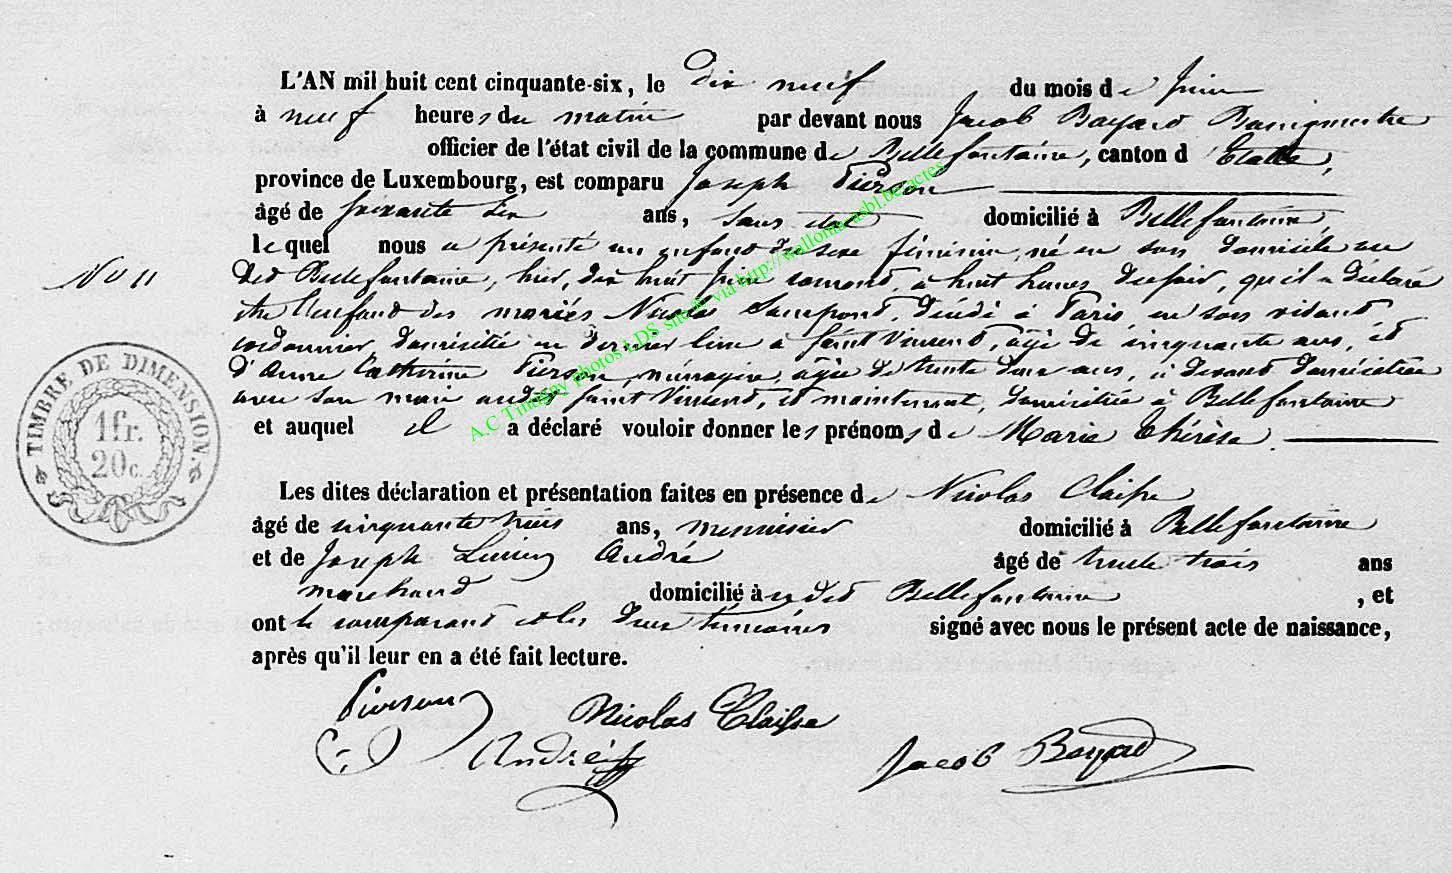 L'AN mil huit cent cinquante-six, le dix neuf du mois de Juin
à neuf heures du matin par devant nous Jacob Bayard Bourgmestre
officier de l'état civil de la commune de Bellefontaine, canton d'Etalle,
province de Luxembourg, est comparu Joseph Pierson
âgé de soixante six ans, sans état domicilié à Bellefontaine,
lequel nous a présenté un enfant du sexe féminin, né en son domicile au
N° 11
dit Bellefontaine, hier, dix huit Juin courant, à huit heures du soir, qu'il a déclaré
être l'enfant des mariés Nicolas, décédé à Paris en son vivant
cordonnier, domicilié en dernier lieu à Saint Vincent, âgé de cinquante ans, et
d'Anne Catherine Pierson, ménagère, âgée de trente deux ans, ci devant domiciliée
avec son mari audit Saint Vincent, et maintenant, domiciliée à Bellefontaine
et auquel il a déclaré vouloir donner les prénoms de Marie Thérèse.
TIMBRE DE DIMENSION.
1 fr.
20 c.
Les dites déclaration et présentation faites en présence de Nicolas Claisse
âgé de cinquante trois ans, menuisier domicilié à Bellefontaine
et de Joseph Lucien André âgé de trente trois ans
marchand domicilié à udit Bellefontaine, et
ont le comparant et les deux témoins signé avec nous le présent acte de naissance,
après qu'il leur en a été fait lecture.
Pierson
Nicolas Claisse
André
Jacob Bayard
A.C Tintigny photos LDS site via http://wallonia.asbl.be/actes